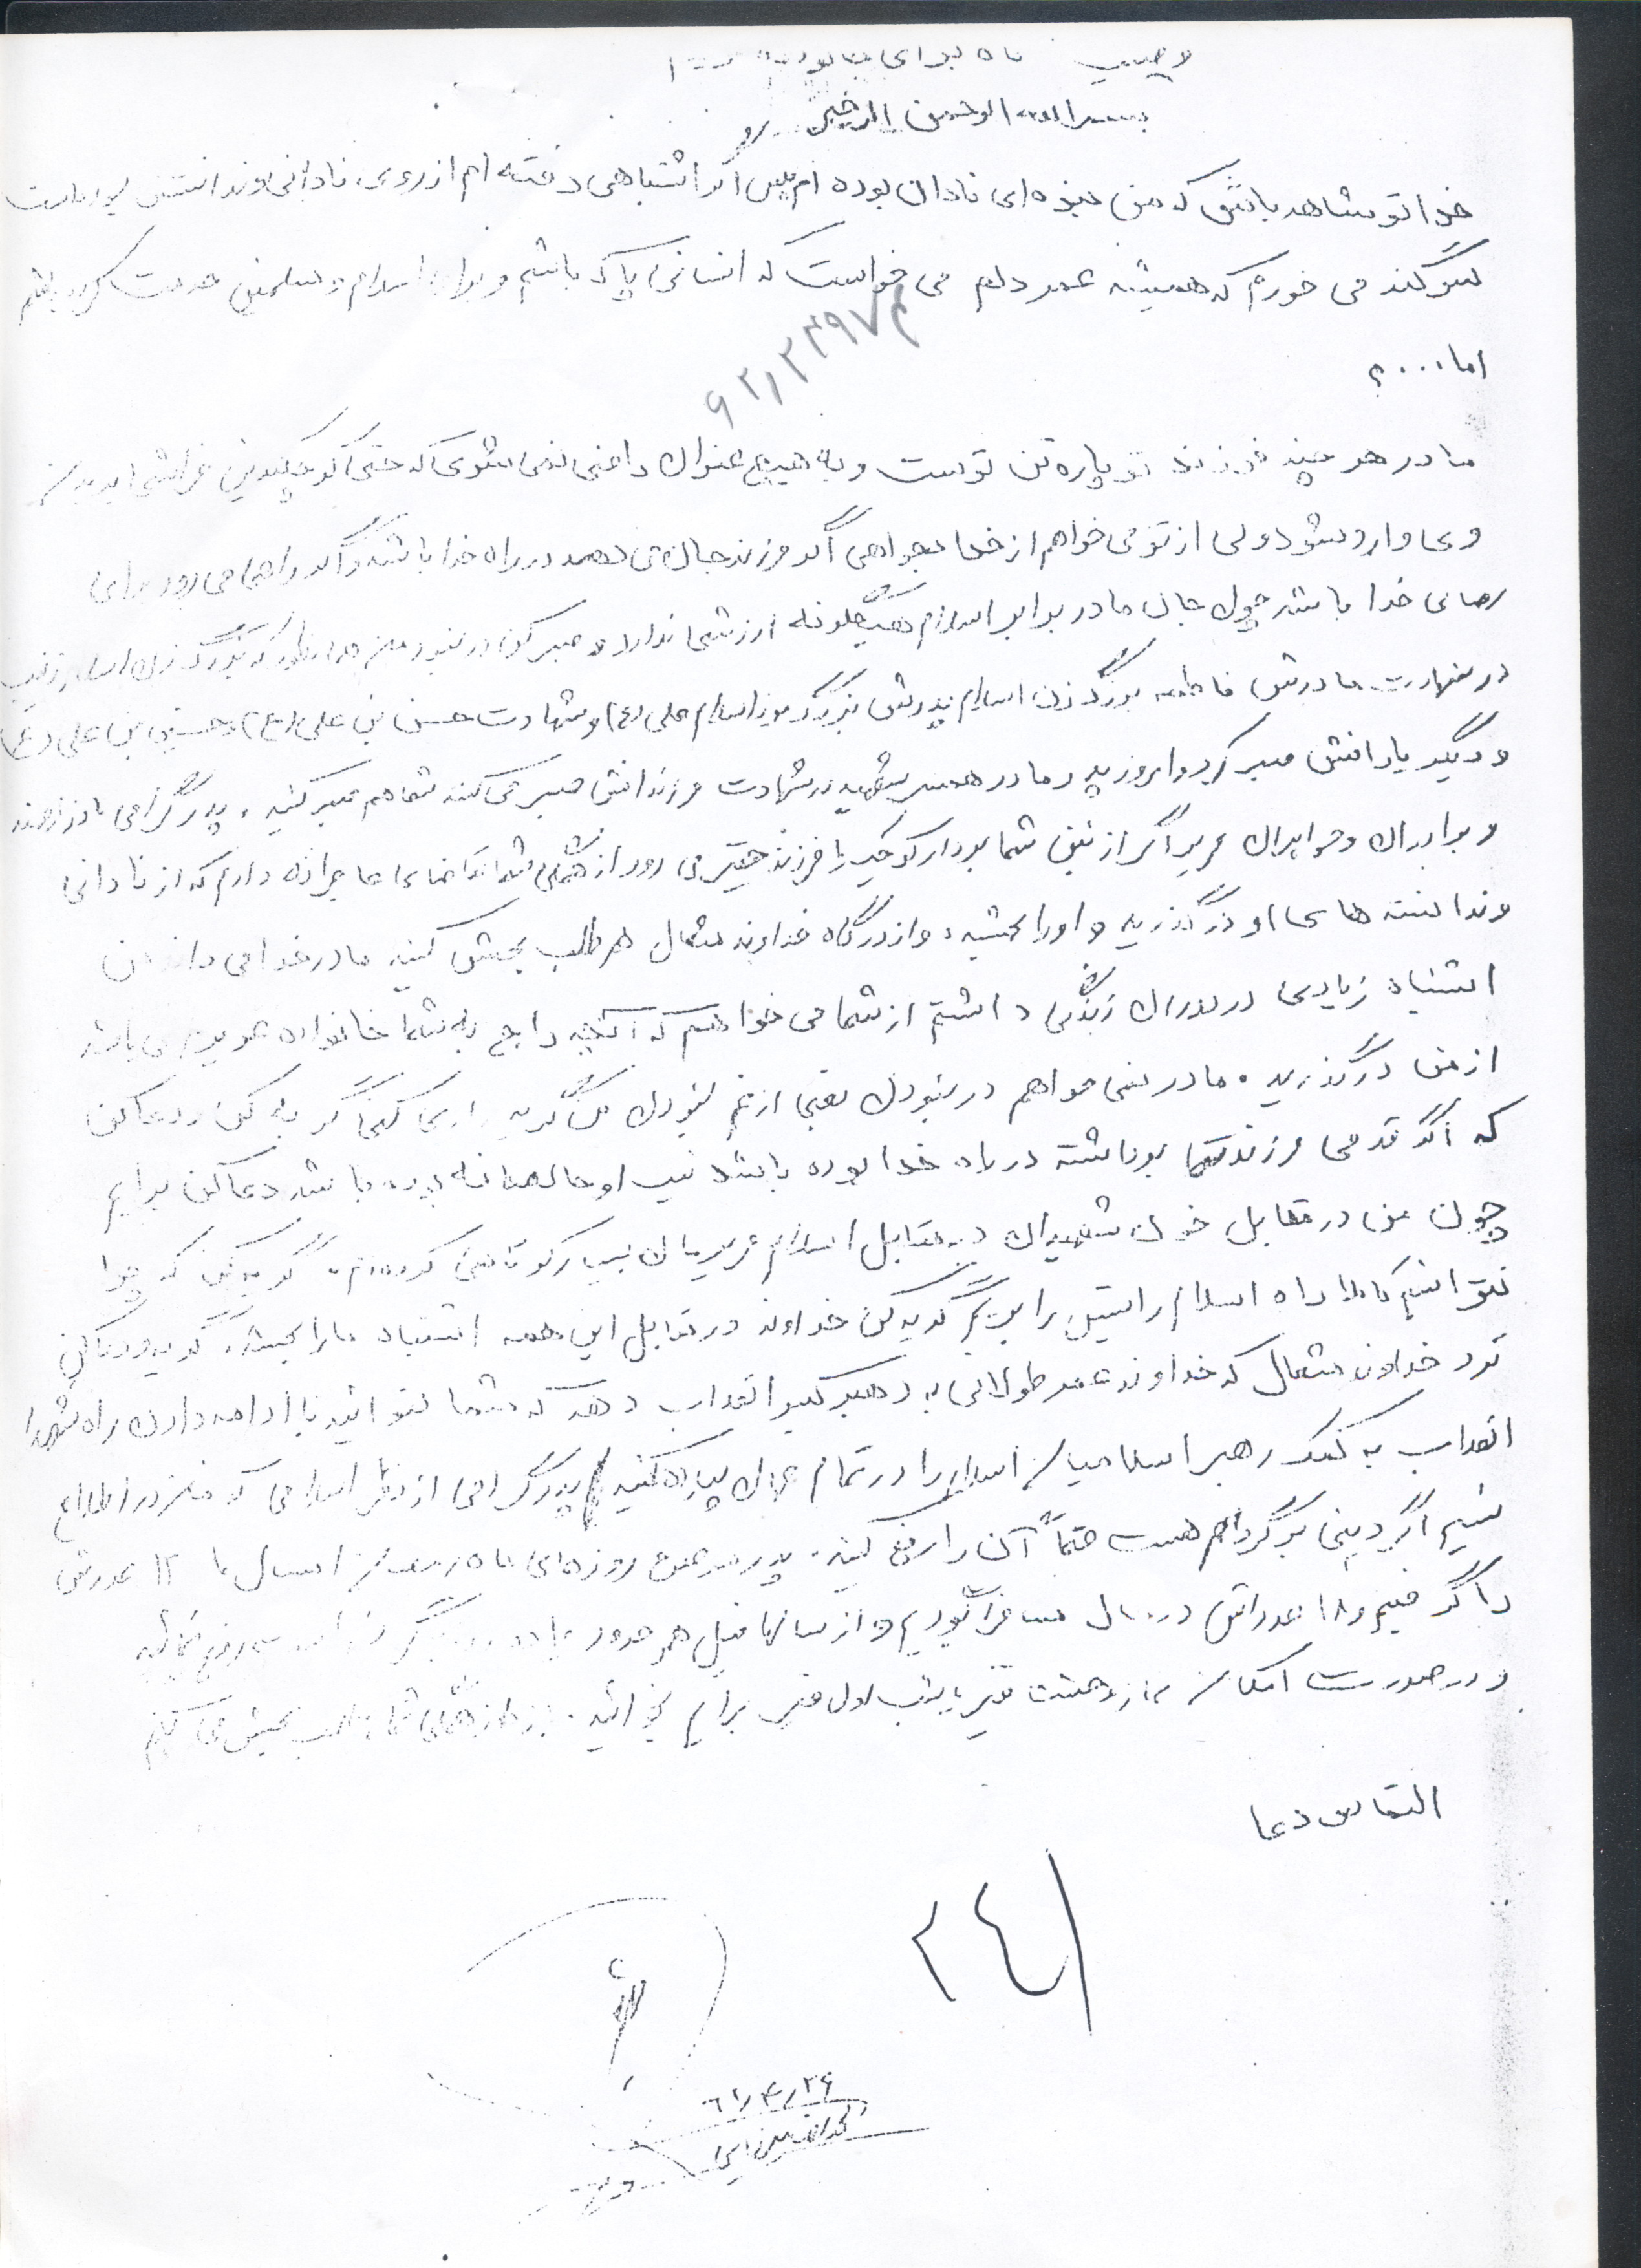 بسم الله الرحمن الرحیم
خدا تو شاهد باش که من بنده‌ای نادان بوده‌ام پس اگر اشتباهی رفته‌ام از روی نادانی و ندانستن
سوگند می خورم که همیشه عمر دلم می خواست که انسانی پاک باشم و برای اسلام و مسلمین خدمت کرده باشم
۹۲۱۲۳۹۷م
اما ....؟
مادر هر چند فرزند تو پاره تن توست و به هیچ عنوان راضی نمی شوی که حتی کوچکترین خراشی به بدن
وی وارد شود ولی از تو می خواهم از خدا بخواهی اگر فرزند جان می دهد در راه خدا باشد و اگر راهی می رود برای
رضای خدا باشد چون جان ما در برابر اسلام هیچگونه ارزشی ندارد و صبر کن در نبود من همانطور که بزرگ زن اسلام زینب
در شهادت مادرش فاطمه بزرگ زن اسلام پدرش بزرگ مرد اسلام علی (ع) و شهادت حسن بن علی (ع) و حسین بن علی (ع)
و دیگر یارانش صبر کرد و امروز پدر مادر همسر شهید در شهادت فرزندانش صبر می کنند شما هم صبر کنید . پدر گرامی مادر
و برادران و خواهران عزیز اگر از بین شما برادر کوچک یا فرزند حقیر می رود از همگی شما تقاضای عاجزانه دارم که از نادانی
و ندانسته های او درگذرید و او را ببخشید و از درگاه خداوند متعال هم طلب بخشش کنید مادر خدا می داند من
اشتباه زیادی در دوران زندگی داشتم از شما می خواهم که آنچه راجع به شما خانواده عزیزم می باشد
از من درگذرید . مادر نمی خواهم در نبودن یعنی از غم نبودن من گریه زاری کنی گریه کن و دعا کن
که اگر قدمی فرزند شما برداشته در راه خدا بوده باشد نیت او خالصانه بوده باشد دعا کن برایم
چون من در مقابل خون شهیدان در مقابل اسلام عزیزمان بسیار کوتاهی کرده‌ام . گریه کن که چرا
نتوانستم کاملا راه اسلام راستین را بروم گریه کن خداوند در مقابل این همه اشتباه ما را ببخشد . گریه و دعا کن
نزد خداوند متعال که خداوند عمر طولانی به رهبر کبیر انقلاب دهد که شما بتوانید با ادامه دادن راه شهدا
انقلاب به کمک رهبر اسلام را در تمام جهان پیاده کنید پدر گرامی از نظر اسلامی که من در اطلاع
نیستم اگر دینی بر گردنم هست حتماً آن را رفع کنید . پدر در ضمن روزه‌ای ماه رمضان امسال ما ۱۲ عددش
را گرفتیم و ۱۸ عددش در حال مسافرت بودیم و از سالها قبل هم حدود
و در صورت امکان نماز وحشت قبر یا شب اول قبر برایم بخوانید . باز از همگی شما طلب بخشش می کنم
التماس دعا
۲۴۱
۶۱/۴/۲۶